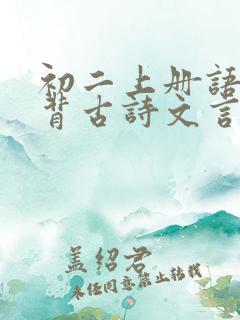 初二上册語
背古詩文言
盖绍君
未经同意禁止转载